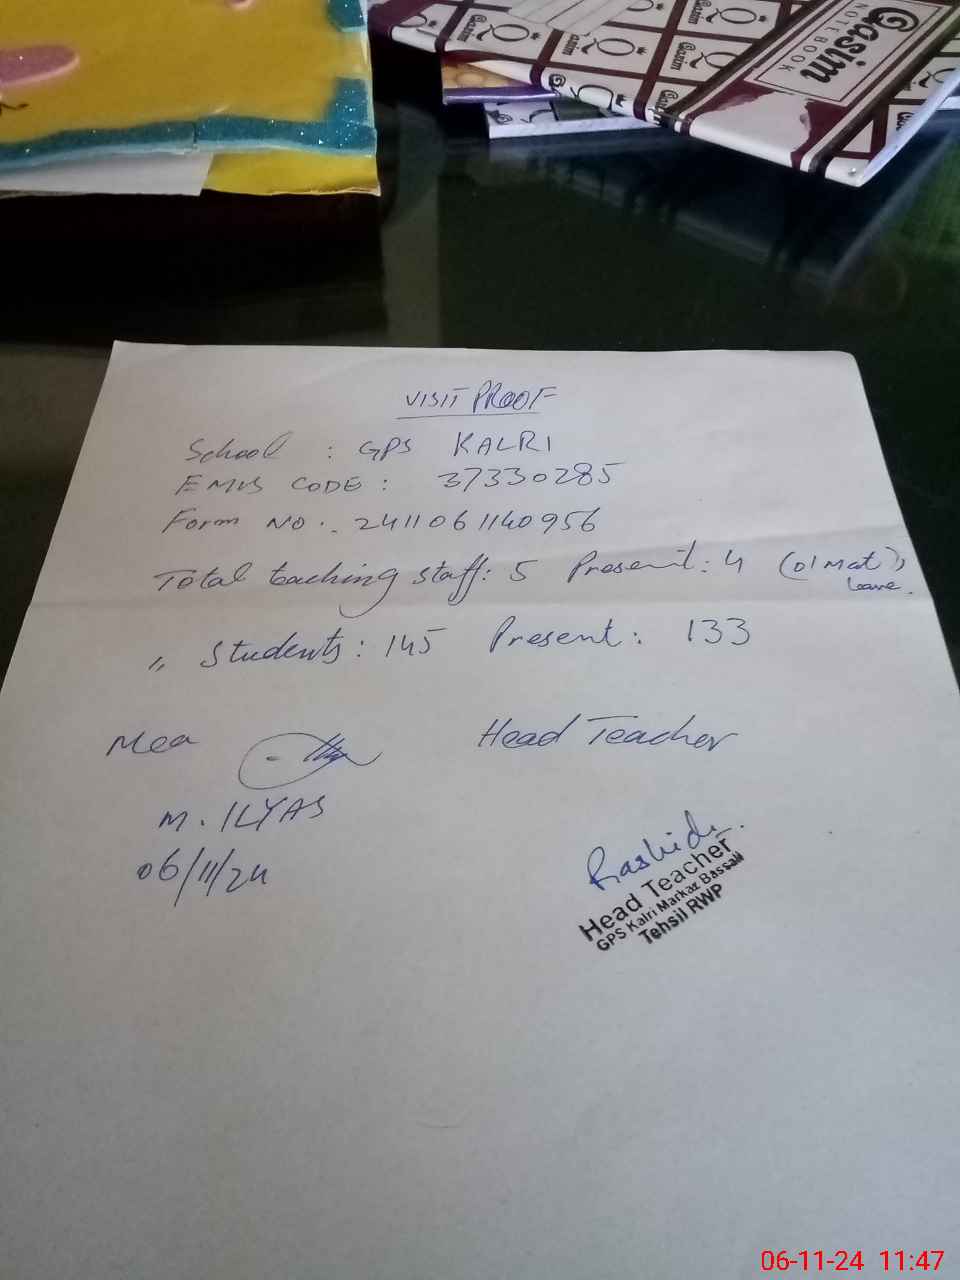 Qasim
NOTEBOOK
VISIT PROOF
School : GPS KALRI
EMIS CODE : 37330285
Form NO :. 2411061140956
Total teaching staff: 5 Present: 4 (01 Mat)
leave.
〃 Students: 145 Present: 133
Mea Head Teacher
M. ILYAS
06/11/24
Rashid
Head Teacher
GPS Kalri Markaz Bassali
Tehsil RWP
06-11-24 11:47